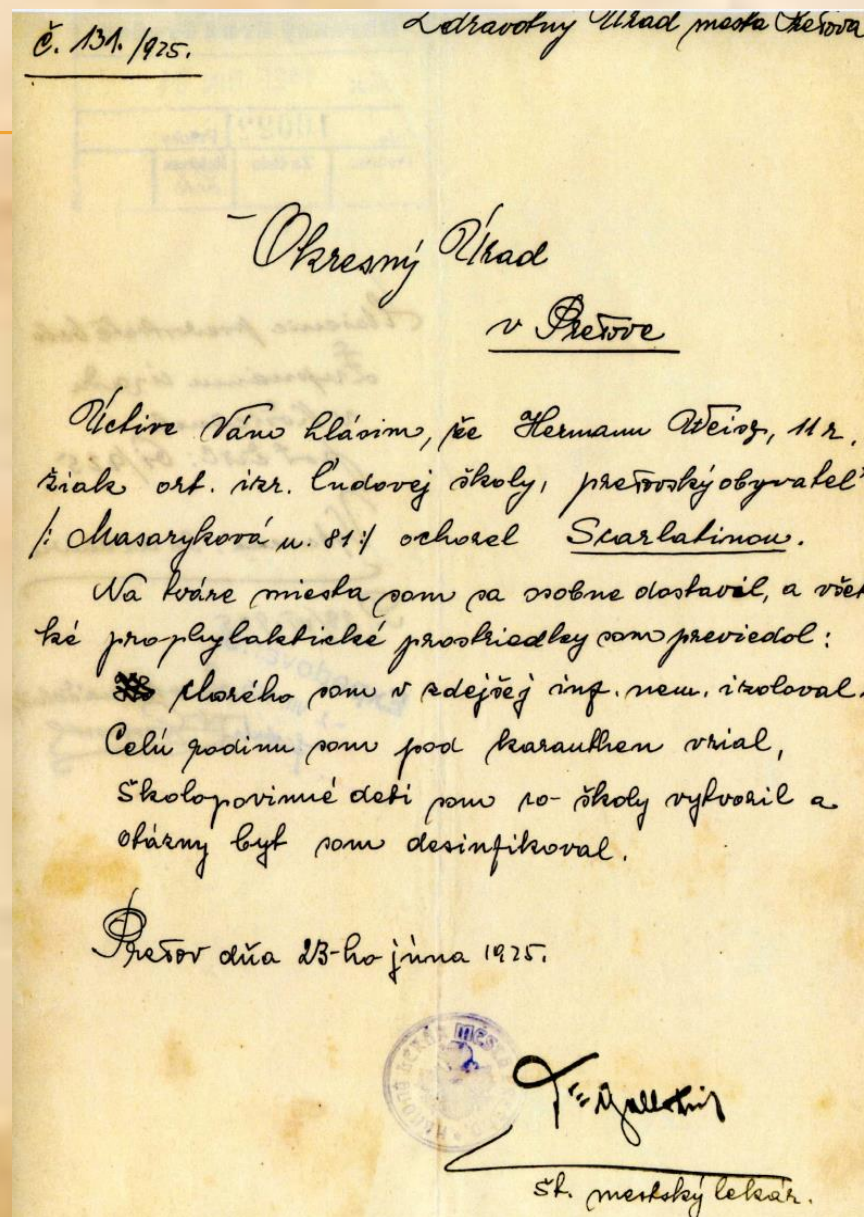 č. 131./925.
Zdravotny Úrad mesta Prešova
Okresný Úrad
v Prešove
Úctive Vám hlásim, že Hermann Weisz, 11 r.
žiak ort. izr. ľudovej školy, prešovský obyvateľ
/: Masaryková u. 81 :/ ochorel Scarlatinou.
Na tváre miesta som sa osobne dostavil, a všet
ké prophylaktické prostriedky som previedol:
chorého som v zdejšej inf. nem. izoloval.
Celú rodinu som pod karanthen vzial,
školopovinné deti som zo školy vytvoril a
otázny byt som desinfikoval.
Prešov dňa 23-ho júna 1925.
št. mestský lekár.